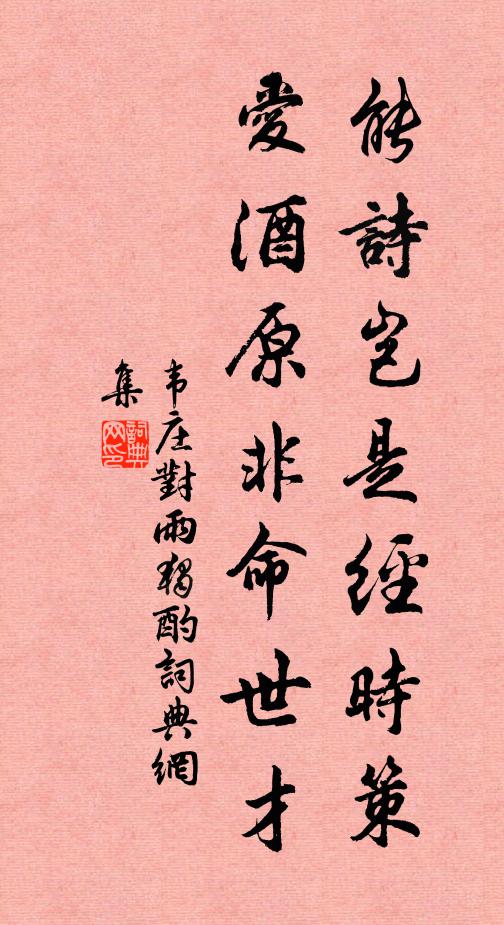 能詩岂是經時策
愛酒原非命世才
韦庄對雨獨酌詞典網
集
詞典
网印